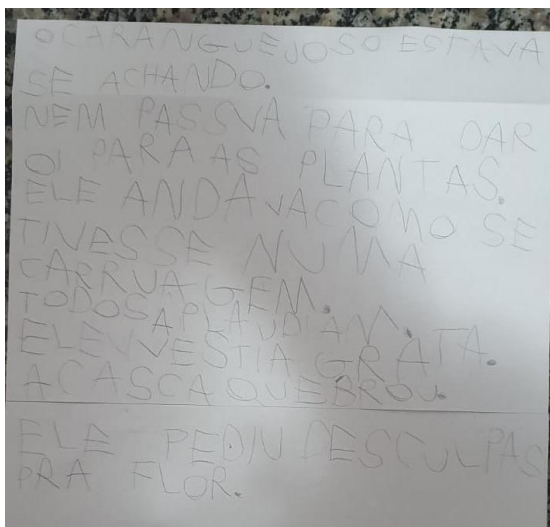 O CARANGUEJO SO ESTAVA
SE ACHANDO.
NEM PASSVA PARA DAR
OI PARA AS PLANTAS.
ELE ANDAVA COMO SE
TIVESSE NUMA
CARRUAGEM.
TODOS APLAUDIAM.
ELE VESTIA GRATA.
A CASCA QUEBROU.
ELE PEDIU DESCULPAS
PRA FLOR.